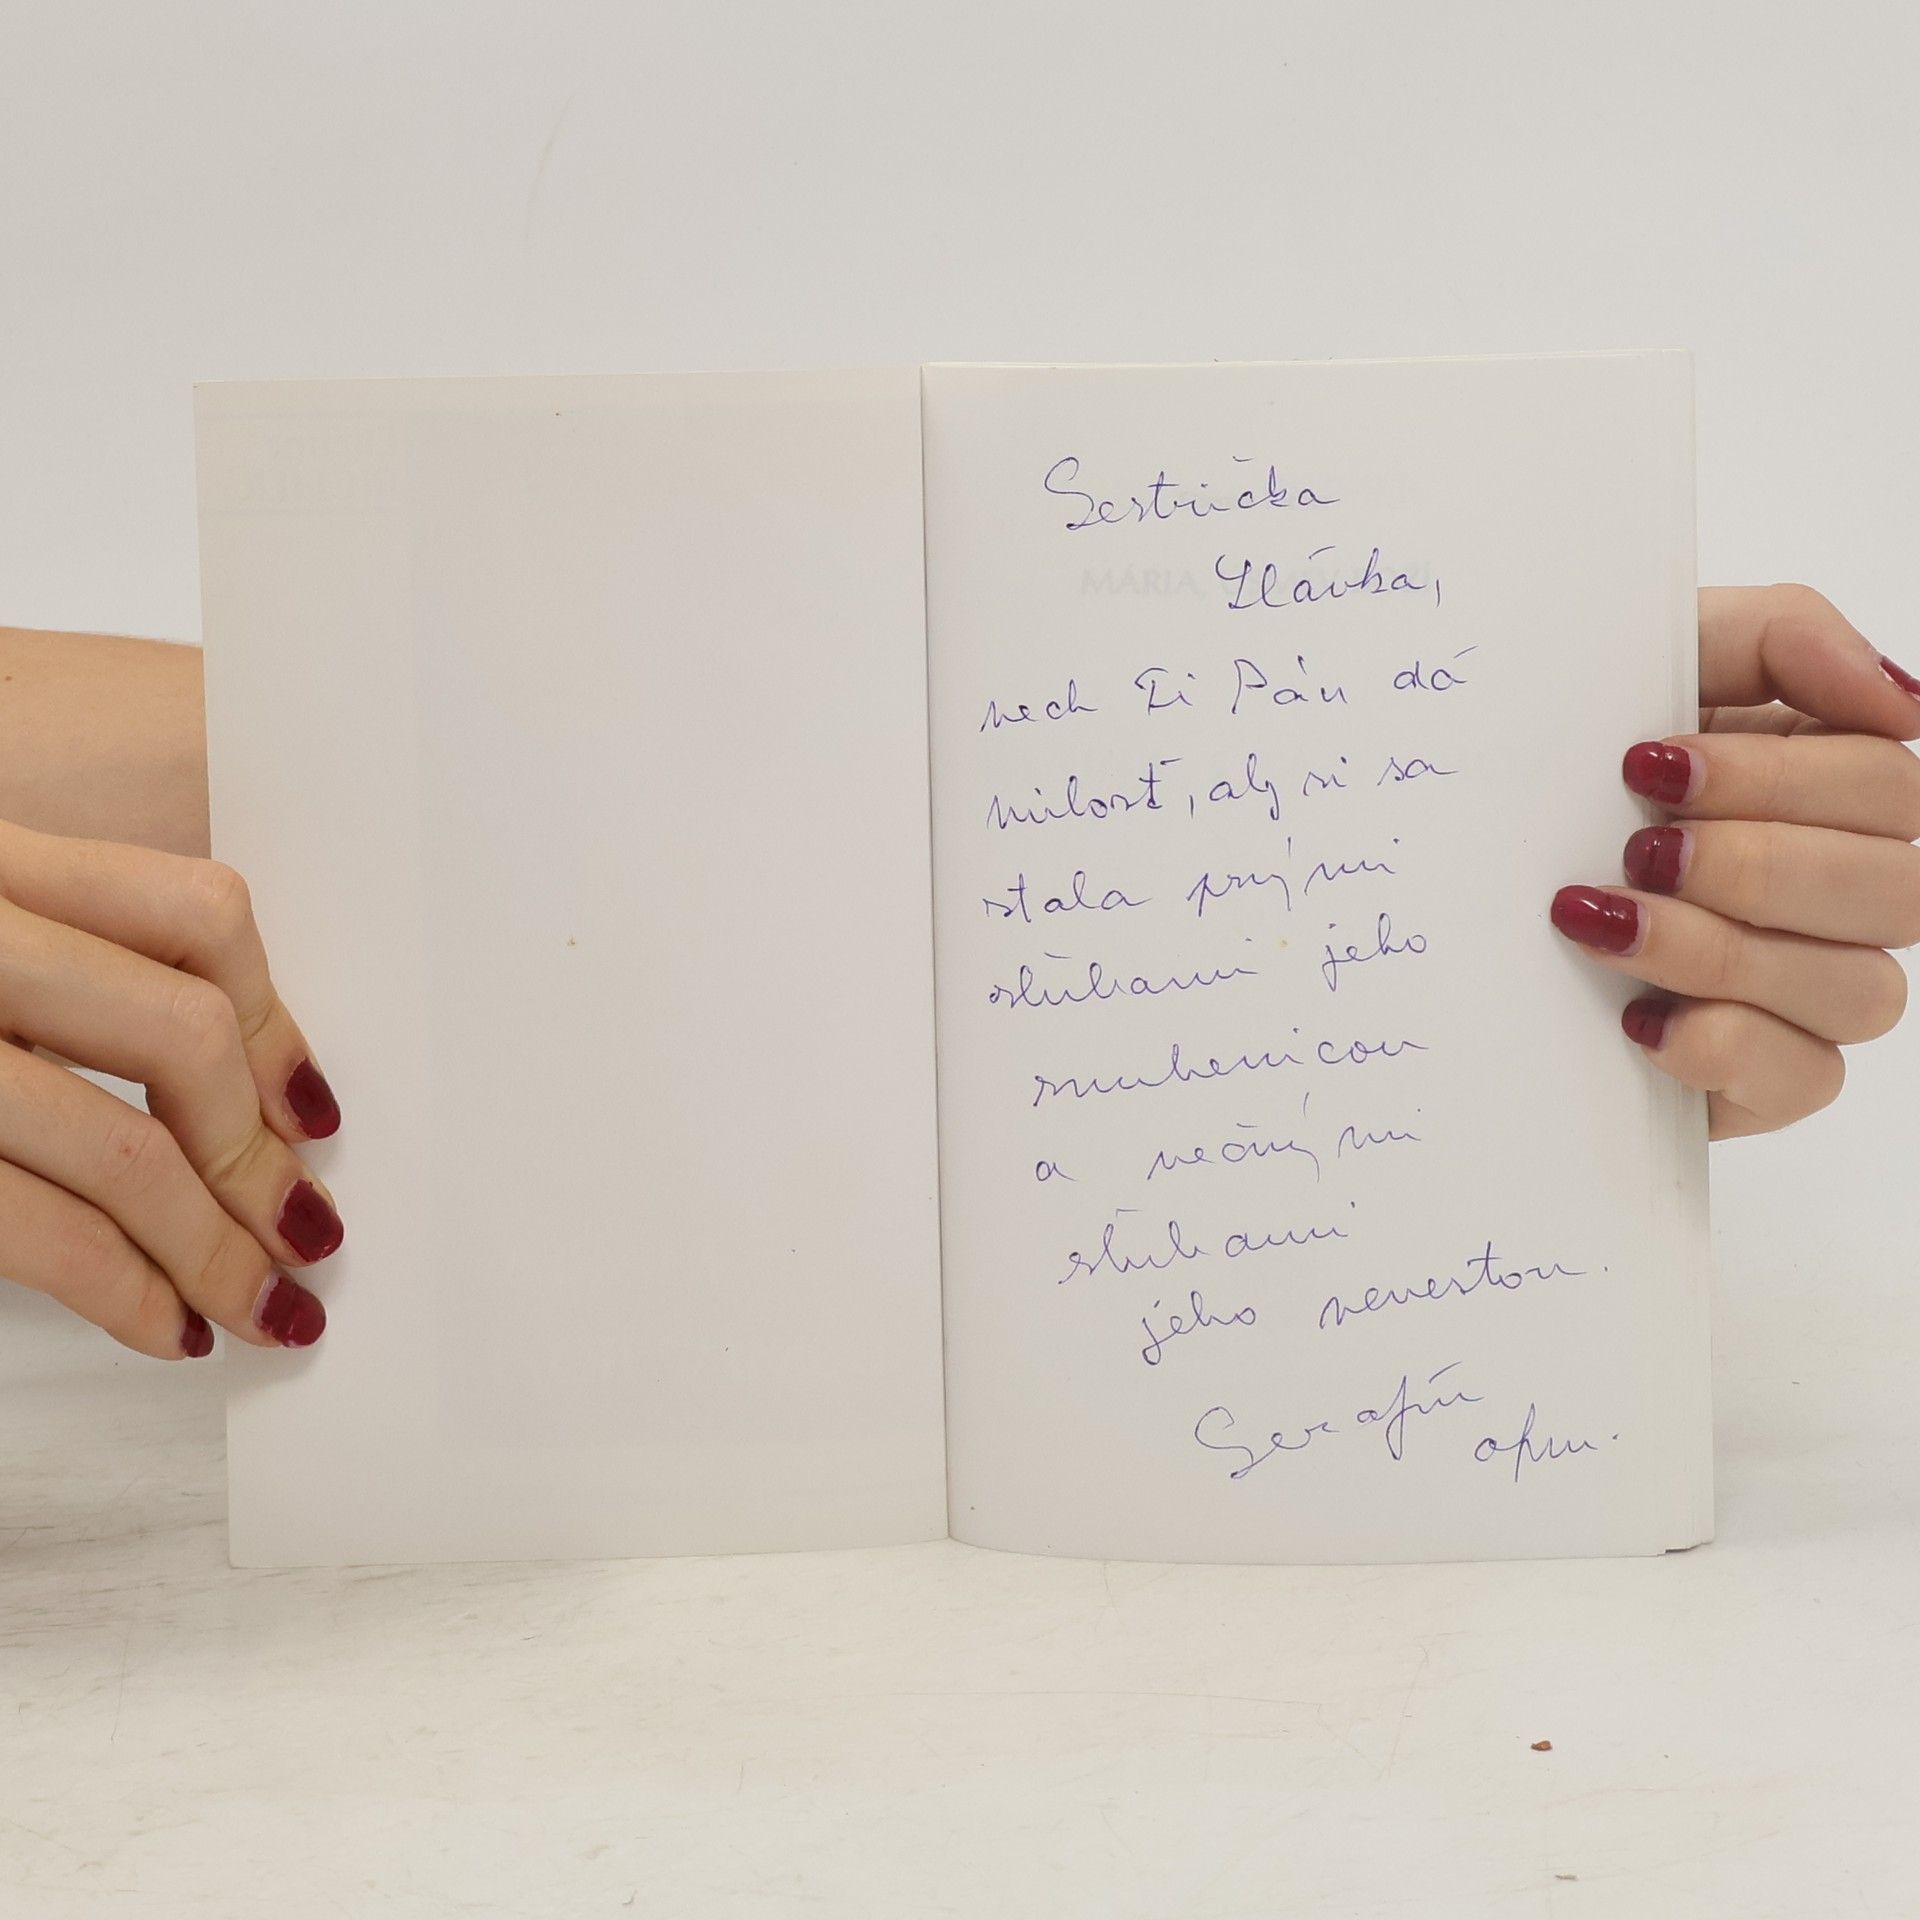 Sestrička
Slávka,
nech Ti Pán dá
milosť, aby si sa
stala prvými
sľubami jeho
snubenicou
a večnými
sľubami
jeho nevestou.
Serafín
ofm.
MÁRIA,